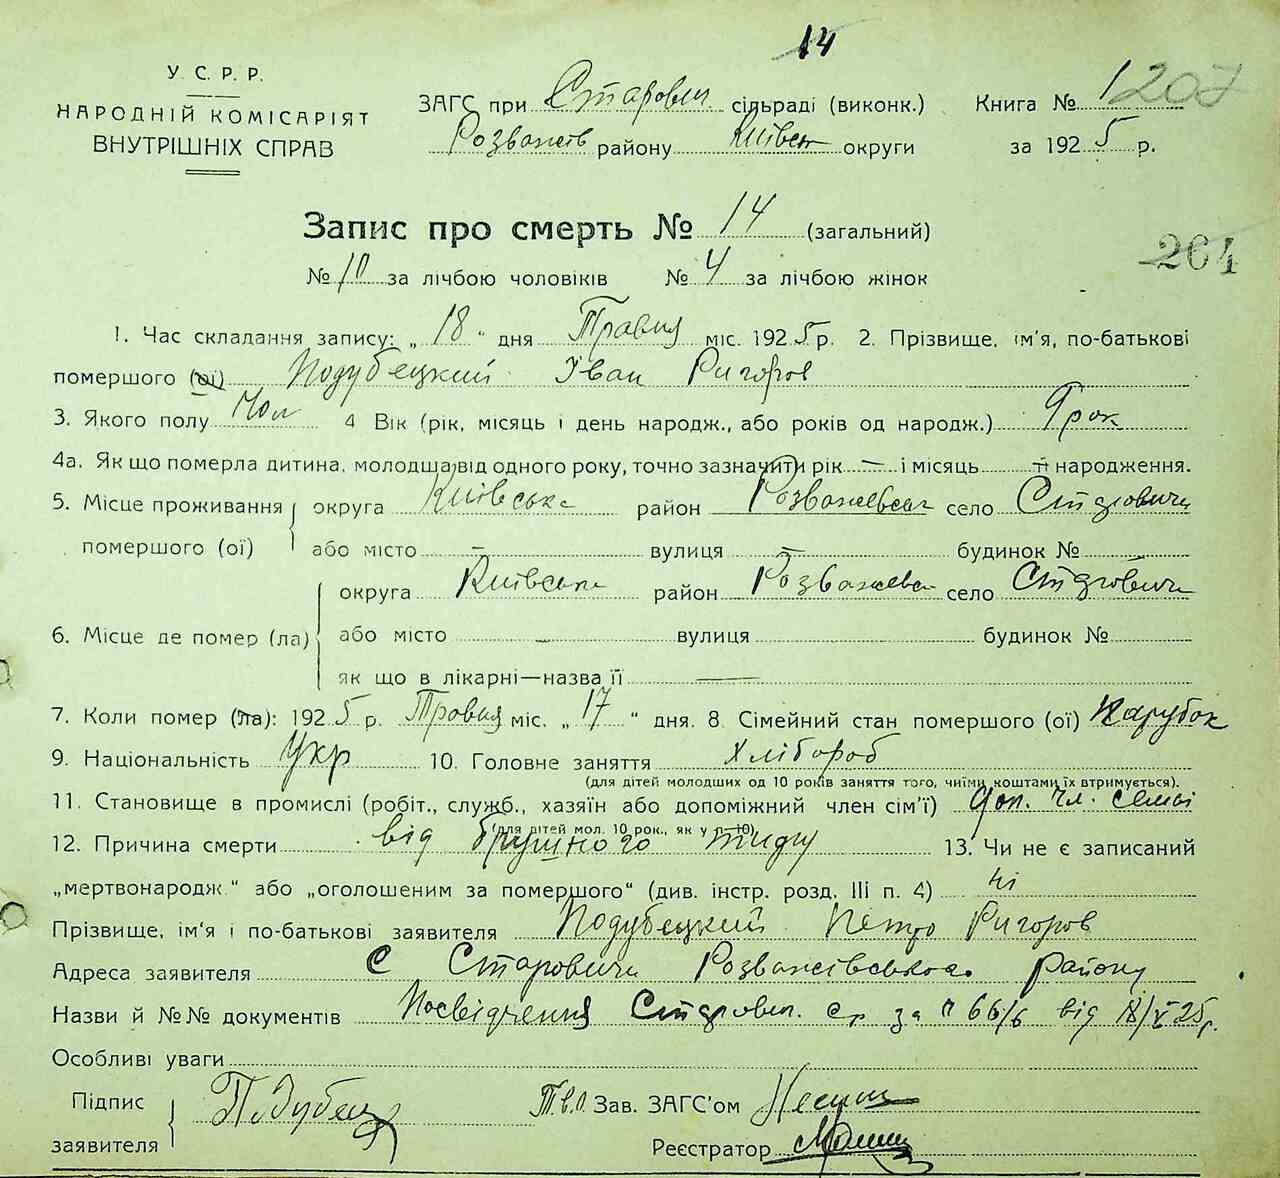 14
У. С. Р. Р.
НАРОДНІЙ КОМІСАРІЯТ
ВНУТРІШНІХ СПРАВ
ЗАГС при Старович сільраді (виконк.)
Розважів району Київськ округи
Книга № 1
207
за 1925 р.
Запис про смерть № 14 (загальний)
№ 10 за лічбою чоловіків № 4 за лічбою жінок
264
1. Час складання запису: „ 18 " дня Травня міс. 1925 р. 2. Прізвище, ім'я, по-батькові
помершого (ої) Подубецкий Іван Ригоров
3. Якого полу Чол 4 Вік (рік, місяць і день народж., або років од народж.) рок
4а. Як що померла дитина, молодша від одного року, точно зазначити рік — і місяць — народження.
5. Місце проживання помершого (ої) округа Київська район Розважевськ село Старовичи
або місто — вулиця — будинок №
6. Місце де помер (ла) округа Київська район Розважевск село Старовичи
або місто — вулиця будинок №
як що в лікарні—назва її —
7. Коли помер (ла): 1925 р. Травня міс. „ 17 " дня. 8. Сімейний стан помершого (ої) Парубок
9. Національність Укр 10. Головне заняття Хлібороб
(для дітей молодших од 10 років заняття того, чиїми коштами їх втримується).
11. Становище в промислі (робіт., служб., хазяїн або допоміжний член сім'ї) Доп. чл. семьі
(для дітей мол. 10 рок., як у п. 10)
12. Причина смерти від брушного тифу 13. Чи не є записаний
„мертвонародж." або „оголошеним за помершого" (див. інстр. розд. III п. 4) ні
Прізвище, ім'я і по-батькові заявителя Подубецкий Петро Ригоров
Адреса заявителя с Старовичи Розважівського району
Назви й №№ документів Посвідчення Старовиц. ср за n 66/6 від 18/V 25 р.
Особливі уваги
Підпис заявителя Подубец
Т.в.о. Зав. ЗАГС'ом
Реєстратор